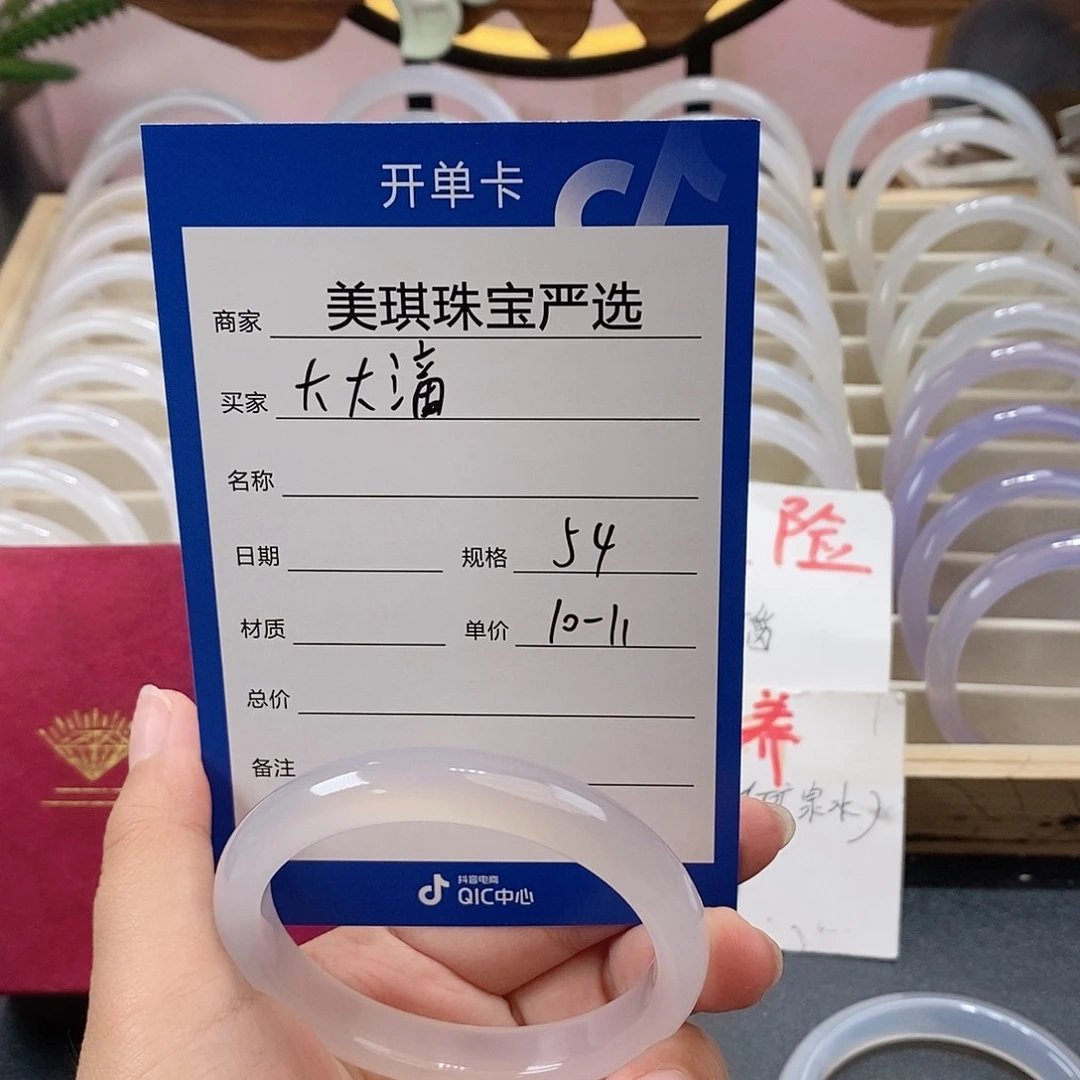 开单卡
商家 美琪珠宝严选
买家 大大滴
名称
日期 规格 54
材质 单价 10-11
总价
备注
抖音电商
QIC中心
险
养
泉水)